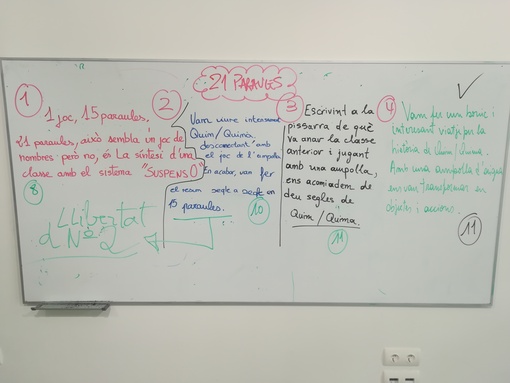 21 PARAULES
1
1 joc, 15 paraules.
21 paraules, això sembla un joc de
nombres però no, és La síntesi d'una
classe amb el sistema "SUSPENSO"
8
LLibertat
d'
2
Vam viure intensament
Quim/Quima.
desconnectant amb
el joc de l'ampolla
En acabar, vam fer
el resum segle a segle en
15 paraules.
10
3
Escrivint a la
pissarra de què
va anar la classe
anterior i jugant
amb una ampolla,
ens acomiadem de
deu segles de
Quim/Quima.
11
4
Vam fer un bonic i
interessant viatge per la
història de Quim/Quima.
Amb una ampolla d'aigua
ens vam transformar en
objectes i accions.
11